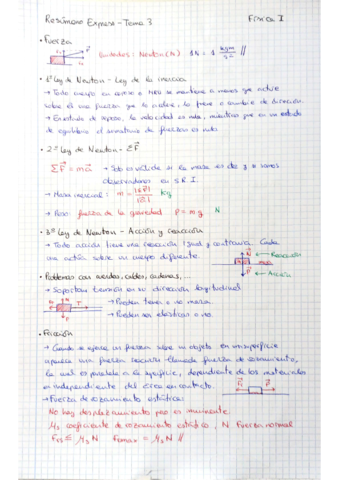 Resúmenes Express - Tema 3 Física I
• Fuerza
Unidades: Newton (N) 1N = 1 kg m / s² //
• 1ª Ley de Newton - Ley de la inercia
→ Todo cuerpo en reposo o MRU se mantiene a menos que actúe
sobre él una fuerza que lo acelere, lo frene o cambie de dirección.
→ En estado de reposo, la velocidad es nula, mientras que en un estado
de equilibrio el sumatorio de fuerzas es nulo.
• 2ª Ley de Newton - ΣF⃗
ΣF⃗ = ma⃗ → Solo es válida si la masa es cte y si somos
observadores en S.R.I.
→ Masa inercial: m = |ΣF⃗| / |a⃗| kg
→ Peso: fuerza de la gravedad P = m g N
• 3ª Ley de Newton - Acción y reacción
→ Toda acción tiene una reacción igual y contraria. Cada
una actúa sobre un cuerpo diferente.
N
← Reacción
P ← Acción
• Problemas con cuerdas, cables, cadenas, ...
→ Soportan tensión en su dirección longitudinal
→ Pueden tener o no masa.
→ Pueden ser elásticas o no.
N T
P
• Fricción
→ Cuando se ejerce una fuerza sobre un objeto en una superficie
aparece una fuerza reacción llamada fuerza de rozamiento,
la cual es paralela a la superficie, dependiente de los materiales
e independiente del área en contacto.
→ Fuerza de rozamiento estática:
No hay desplazamiento pero es inminente.
μs coeficiente de rozamiento estático, N Fuerza normal
Frs ≤ μs N Fsmax = μs N //